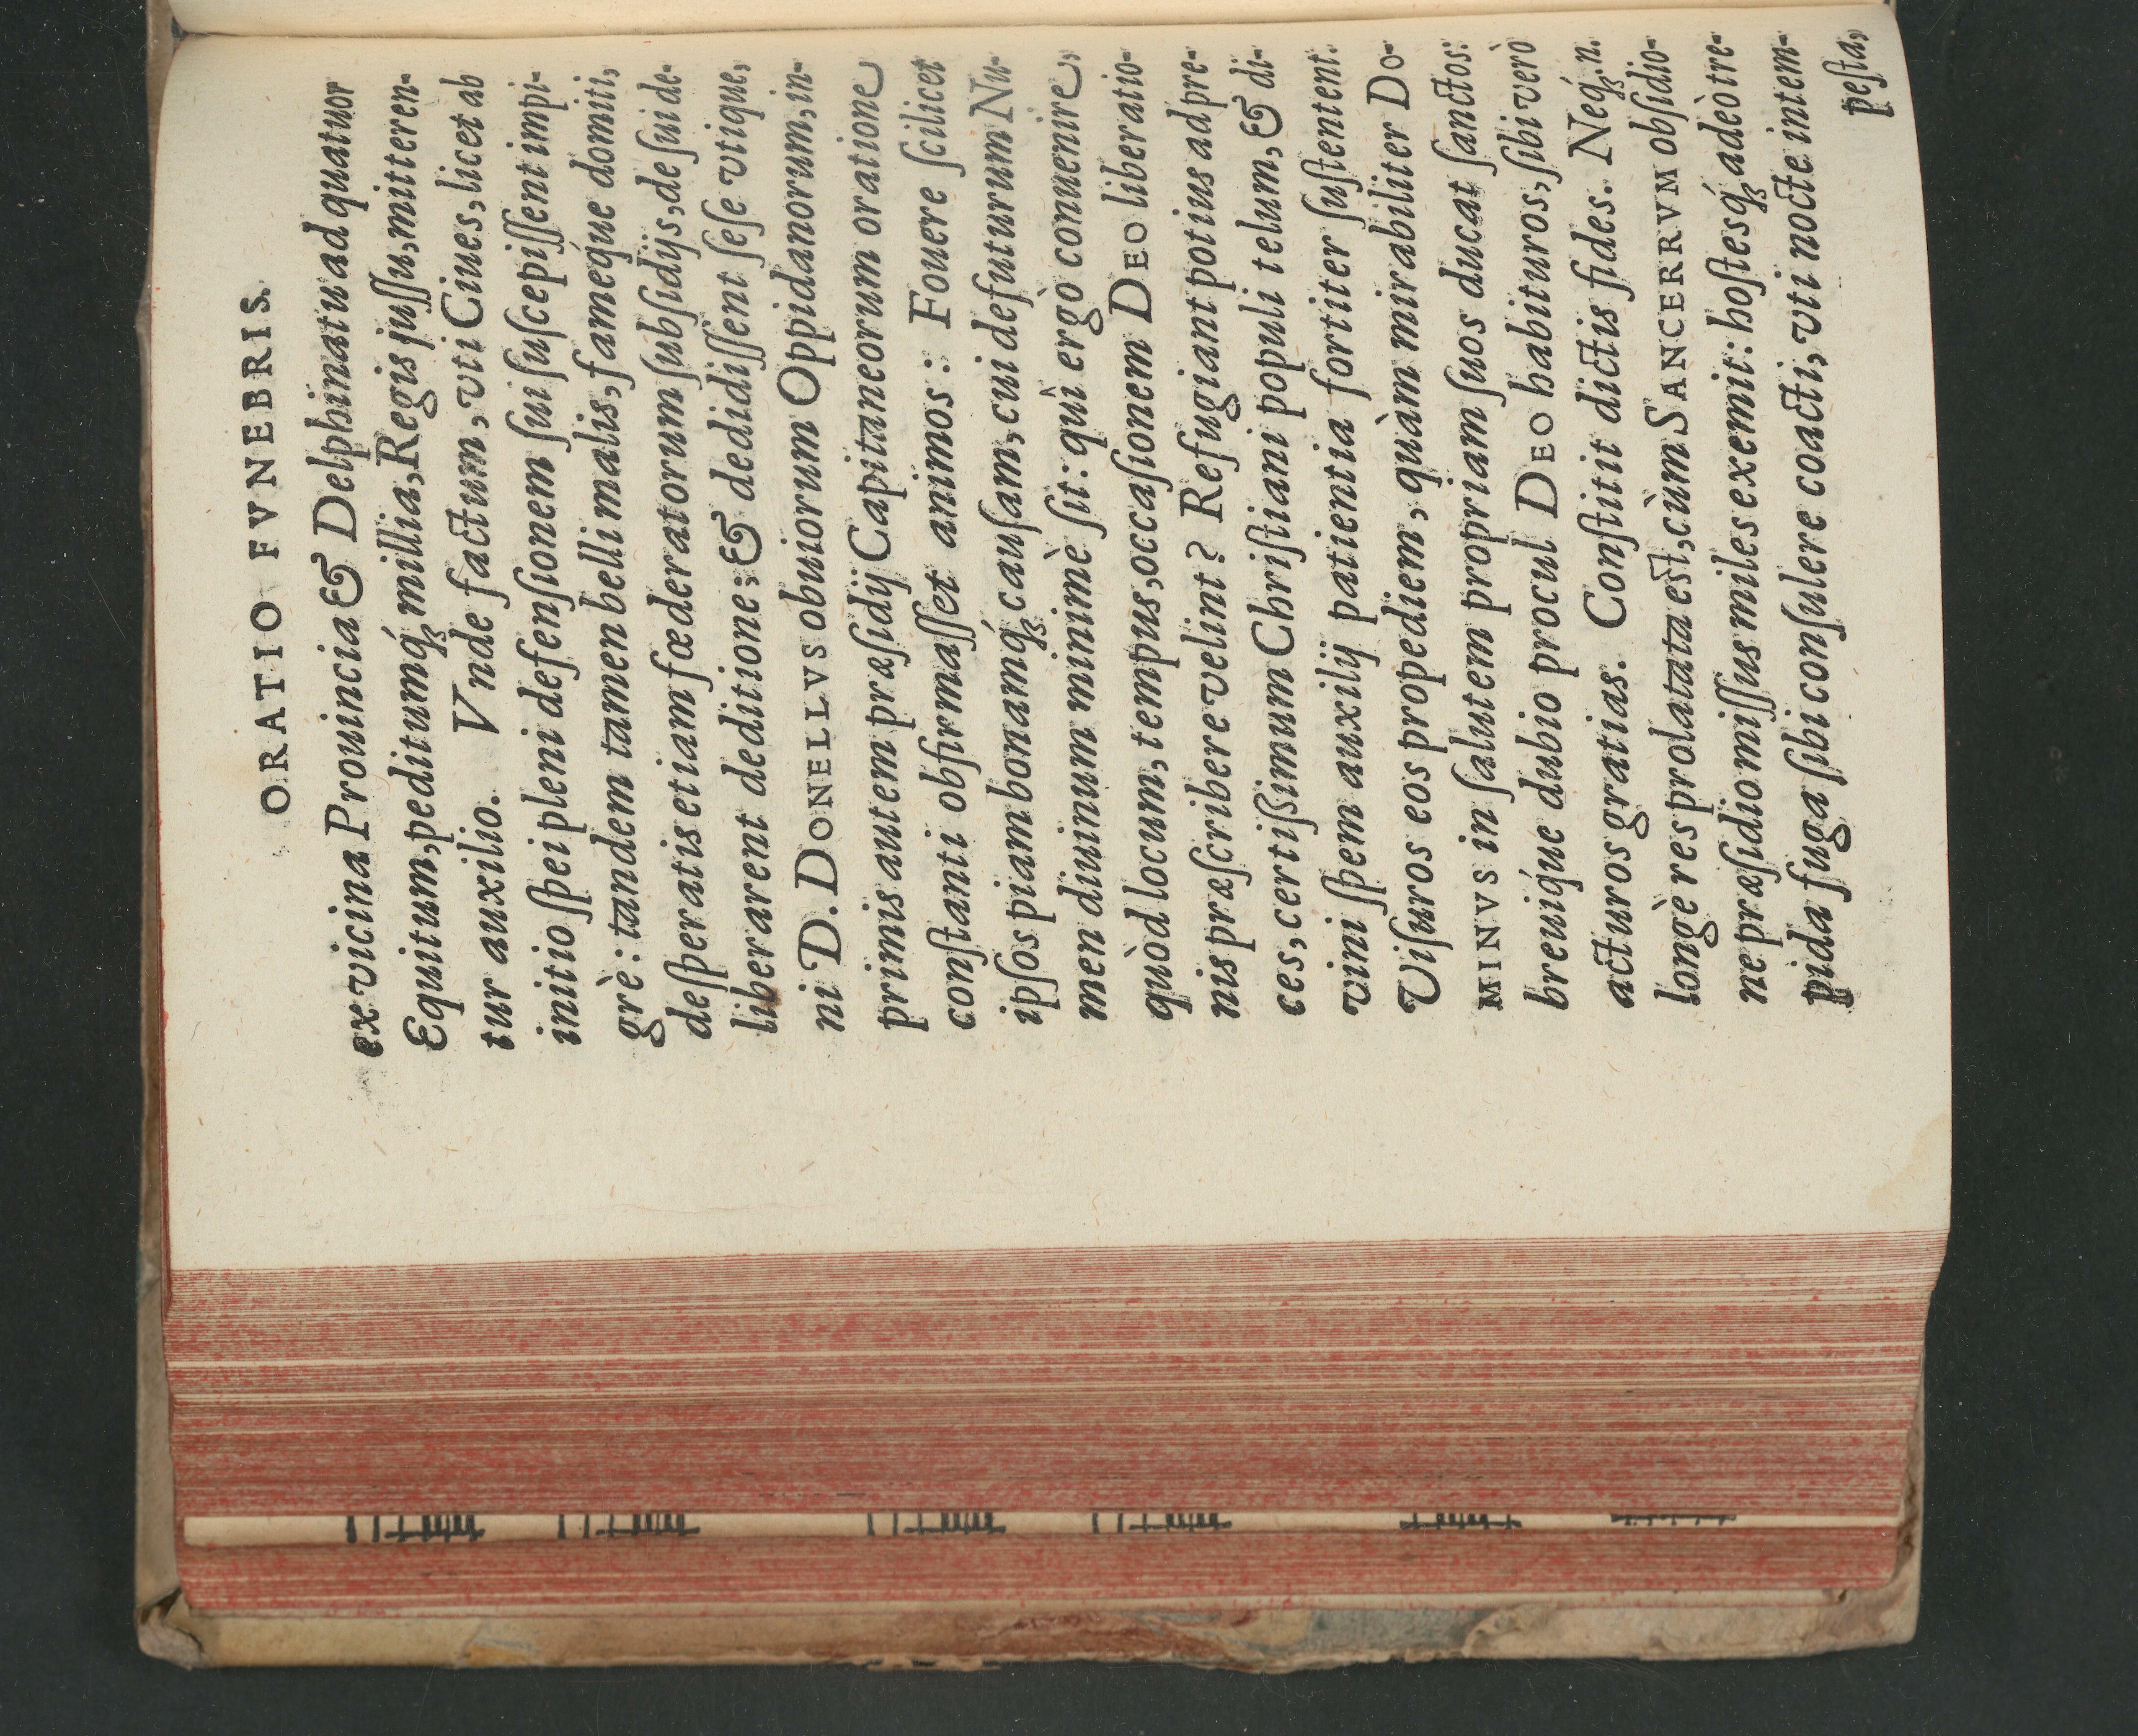 ORATIO FVNEBRIS.
ex vicina Prouincia & Delphinatu ad quatuor
Equitum, peditumq́; millia, Regis juſſu, mitteren-
tur auxilio. Vnde factum, vti Ciues, licet ab
initio ſpei pleni defenſionem ſui ſuſcepiſſent impi-
grè: tandem tamen belli malis, faméque domiti,
deſperatis etiam fœderatorum ſubſidijs, de ſui de-
liberarent deditione: & dedidiſſent ſeſe vtique,
ni D. DONELLVS obuiorum Oppidanorum, in-
primis autem præſidij Capitaneorum oratione
conſtanti obfirmaſſet animos: Fouere ſcilicet
ipſos piam bonamq́; cauſam, cui defuturum Nu-
men diuinum minimè ſit: quì ergò conuenire,
quòd locum, tempus, occaſionem DEO liberatio-
nis præſcribere velint? Refugiant potius ad pre-
ces, certiſſimum Chriſtiani populi telum, & di-
vini ſpem auxilij patientia fortiter ſuſtentent.
Viſuros eos propediem, quàm mirabiliter DO-
MINVS in ſalutem propriam ſuos ducat ſanctos:
breuiq́ue dubio procul DEO habituros, ſibi verò
acturos gratias. Conſtitit dictis fides. Neq́;. n.
longè res prolatata eſt, cùm SANCERRVM obſidio-
ne præſidio miſſus miles exemit: hoſtesq́; adeò tre-
pida fuga ſibi conſulere coacti, vti nocte intem-
peſta,